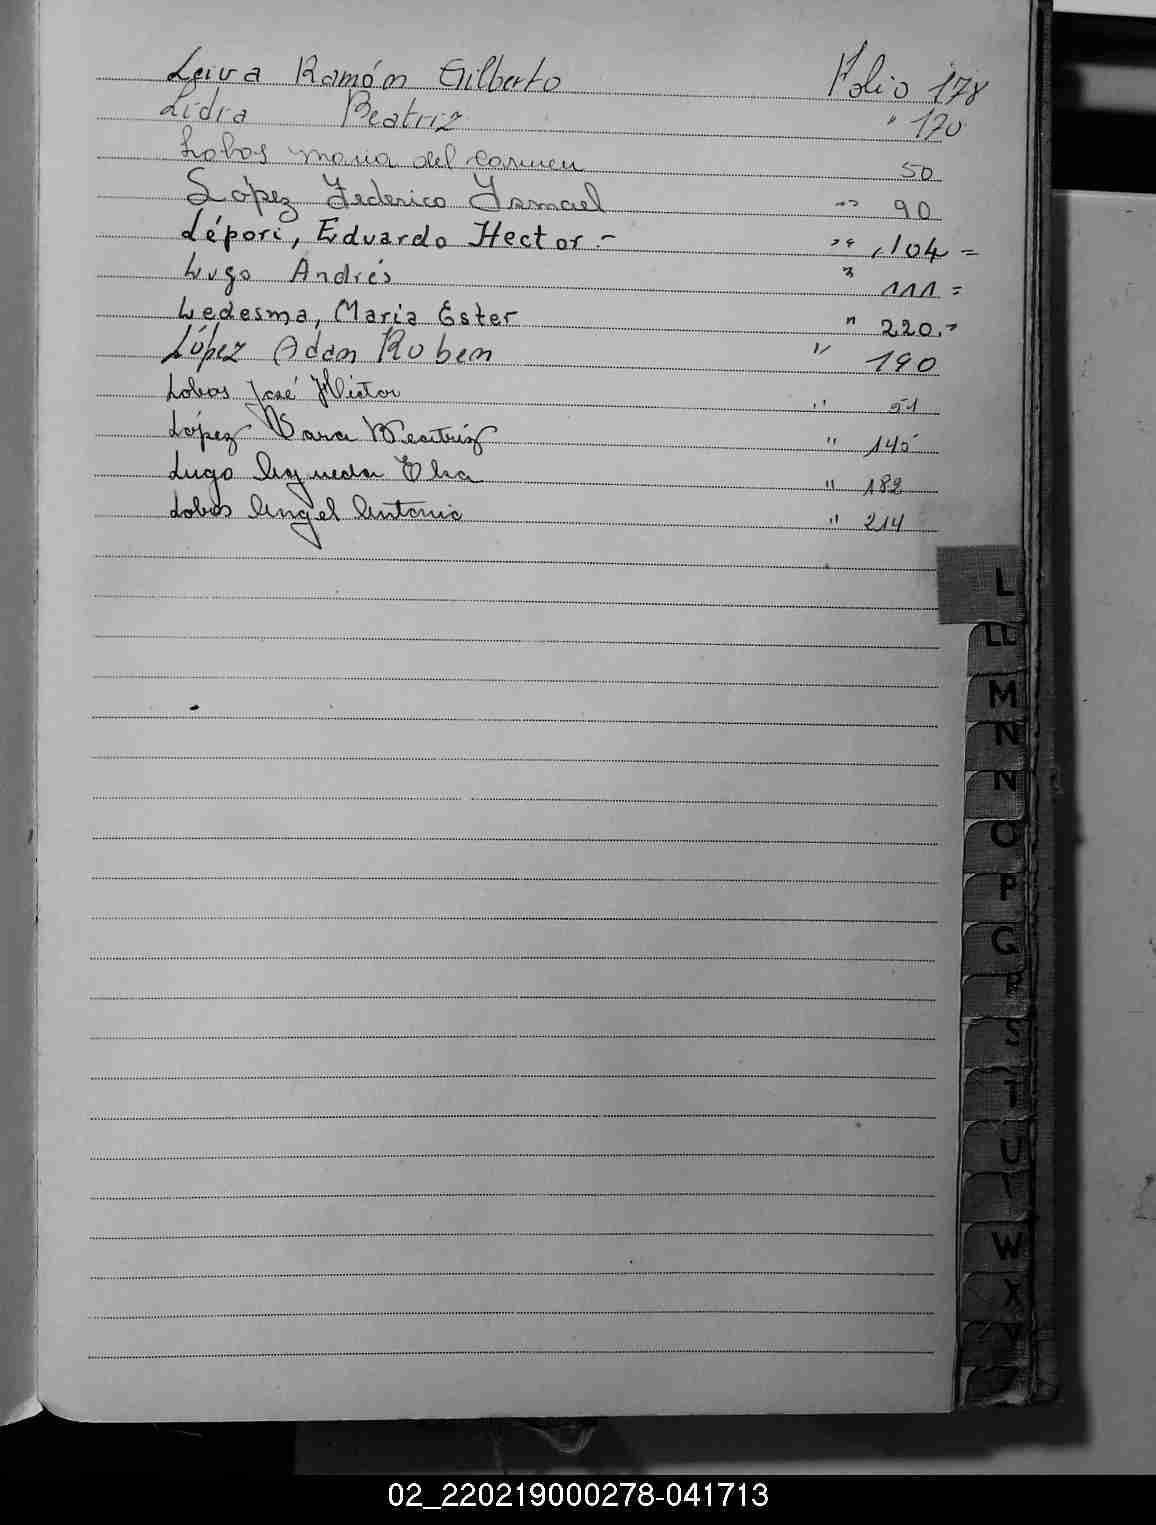 Leiva Ramón Gilberto Folio 178
Lidra Beatriz " 170
Lobos maria del Carmen 50
López Federico Ismael " 90
Lépori, Eduardo Hector.- " 104=
Lugo Andrés " 111=
Ledesma, Maria Ester " 220.-
López Adan Ruben " 190
Lobos José Héctor " 51
López Sara Beatriz " 145
Lugo Agueda Elsa " 182
Lobos Angel Antonio " 214
L
LL
M
N
N
O
P
S
U
W
X
02_220219000278-041713